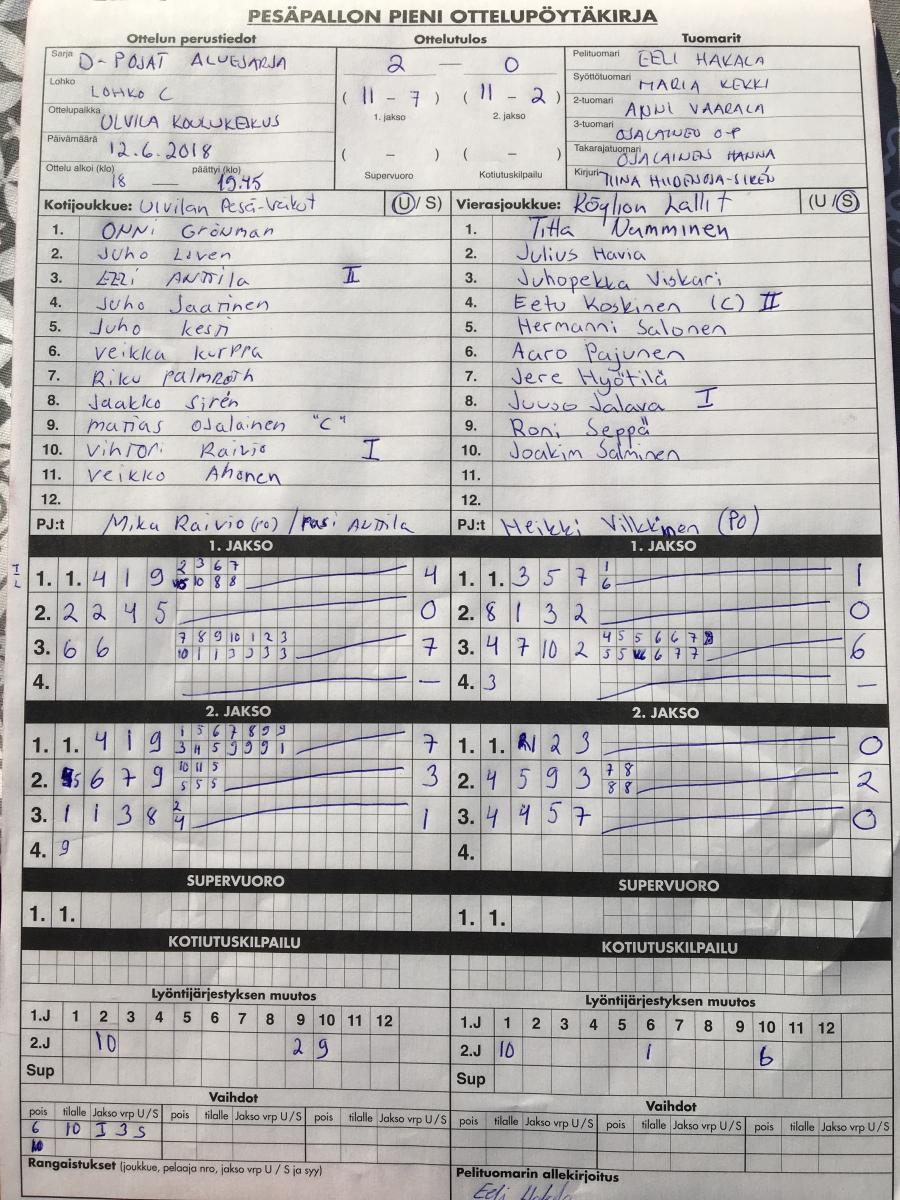 PESÄPALLON PIENI OTTELUPÖYTÄKIRJA
Ottelun perustiedot Ottelutulos Tuomarit
Sarja D-POJAT ALUESARJA 2 — 0 Pelituomari EELI HAKALA
Lohko LOHKO C ( 11 - 7 ) ( 11 - 2 ) Syöttötuomari MARIA KEKKI
Ottelupaikka ULVILA KOULUKESKUS 1. jakso 2. jakso 2-tuomari ANNI VAARALA
Päivämäärä 12.6.2018 ( - ) ( - ) 3-tuomari OJALAINEN O-P
Ottelu alkoi (klo) 18 — päättyi (klo) 19.45 Supervuoro Kotiutuskilpailu Takarajatuomari OJALAINEN HANNA
Kirjuri TIINA HIIDENOJA-SIRÉN
Kotijoukkue: Ulvilan Pesä-Veikot (U/ S) Vierasjoukkue: Köyliön Lallit (U /S)
1. ONNI GRÖNMAN 1. Titta Numminen
2. Juho Liven 2. Julius Havia
3. EELI ANTTILA II 3. Juhopekka Viskari
4. Juho Jaatinen 4. Eetu Koskinen (C) II
5. Juho Kesti 5. Hermanni Salonen
6. Veikka Kurppa 6. Aaro Pajunen
7. Riku Palmroth 7. Jere Hyötilä
8. Jaakko Sirén 8. Juuso Jalava I
9. Matias Ojalainen "C" 9. Roni Seppä
10. Vihtori Raivio I 10. Joakim Salminen
11. Veikko Ahonen 11.
12. 12.
PJ:t Mika Raivio (PO) / Pasi Anttila PJ:t Heikki Vilkkinen (PO)
1. JAKSO 1. JAKSO
1. 1. 4 1 9 2 3 6 7 4 1. 1. 3 5 7 1 1
10 8 8 6
2. 2 2 4 5 0 2. 8 1 3 2 0
3. 6 6 7 8 9 10 1 2 3 7 3. 4 7 10 2 4 5 5 6 6 7 6
10 1 1 3 3 3 3 5 5 6 7 7
4. — 4. 3 —
2. JAKSO 2. JAKSO
1. 1. 4 1 9 1 5 6 7 8 9 9 7 1. 1. 2 3 0
3 4 5 9 9 9 1
2. 5 6 7 9 10 11 5 3 2. 4 5 9 3 7 8 2
5 5 5 8 8
3. 1 1 3 8 2 1 3. 4 4 5 7 0
4
4. 9 4.
SUPERVUORO SUPERVUORO
1. 1. 1. 1.
KOTIUTUSKILPAILU KOTIUTUSKILPAILU
Lyöntijärjestyksen muutos Lyöntijärjestyksen muutos
1.J 1 2 3 4 5 6 7 8 9 10 11 12 1.J 1 2 3 4 5 6 7 8 9 10 11 12
2.J 10 2 9 2.J 10 1 6
Sup Sup
Vaihdot Vaihdot
pois tilalle Jakso vrp U / S pois tilalle Jakso vrp U / S pois tilalle Jakso vrp U / S pois tilalle Jakso vrp U / S pois tilalle Jakso vrp U / S pois tilalle Jakso vrp U / S
6 10 I 3 S
Rangaistukset (joukkue, pelaaja nro, jakso vrp U / S ja syy) Pelituomarin allekirjoitus
Eeli Hakala